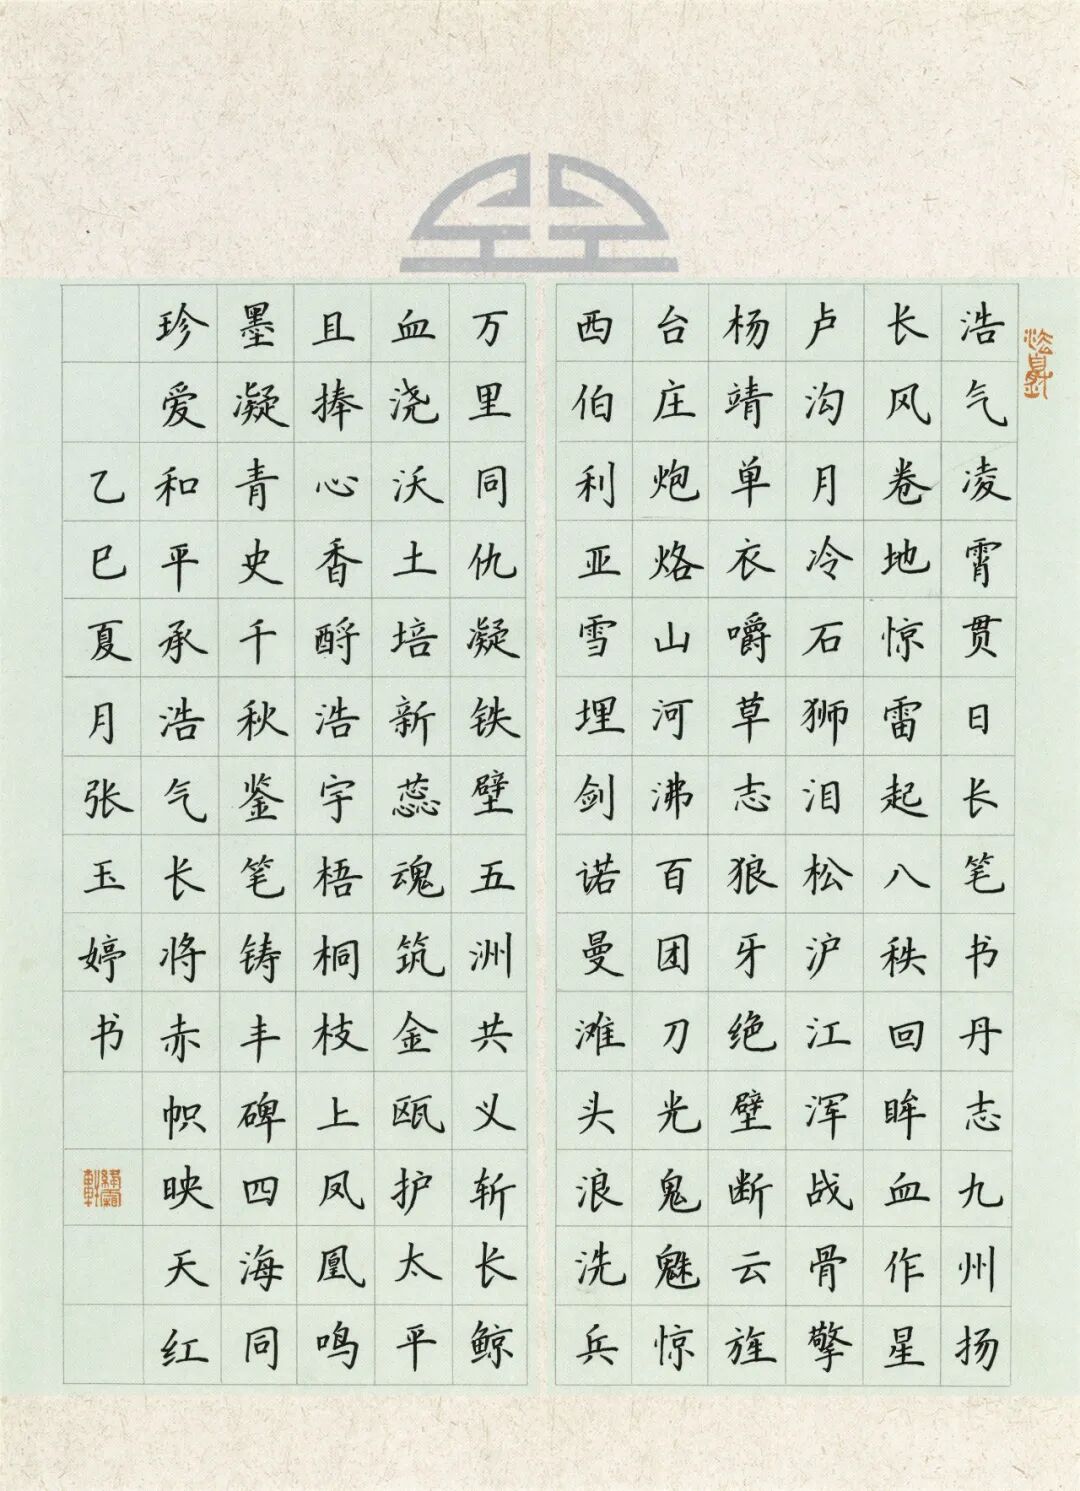 浩气凌霄贯日长笔书丹志九州扬
长风卷地惊雷起八秩回眸血作星
卢沟月冷石狮泪松沪江浑战骨擎
杨靖单衣嚼草志狼牙绝壁断云旌
台庄炮烙山河沸百团刀光鬼魅惊
西伯利亚雪埋剑诺曼滩头浪洗兵
万里同仇凝铁壁五洲共义斩长鲸
血浇沃土培新蕊魂筑金瓯护太平
且捧心香酹浩宇梧桐枝上凤凰鸣
墨凝青史千秋鉴笔铸丰碑四海同
珍爱和平承浩气长将赤帜映天红
乙巳夏月张玉婷书